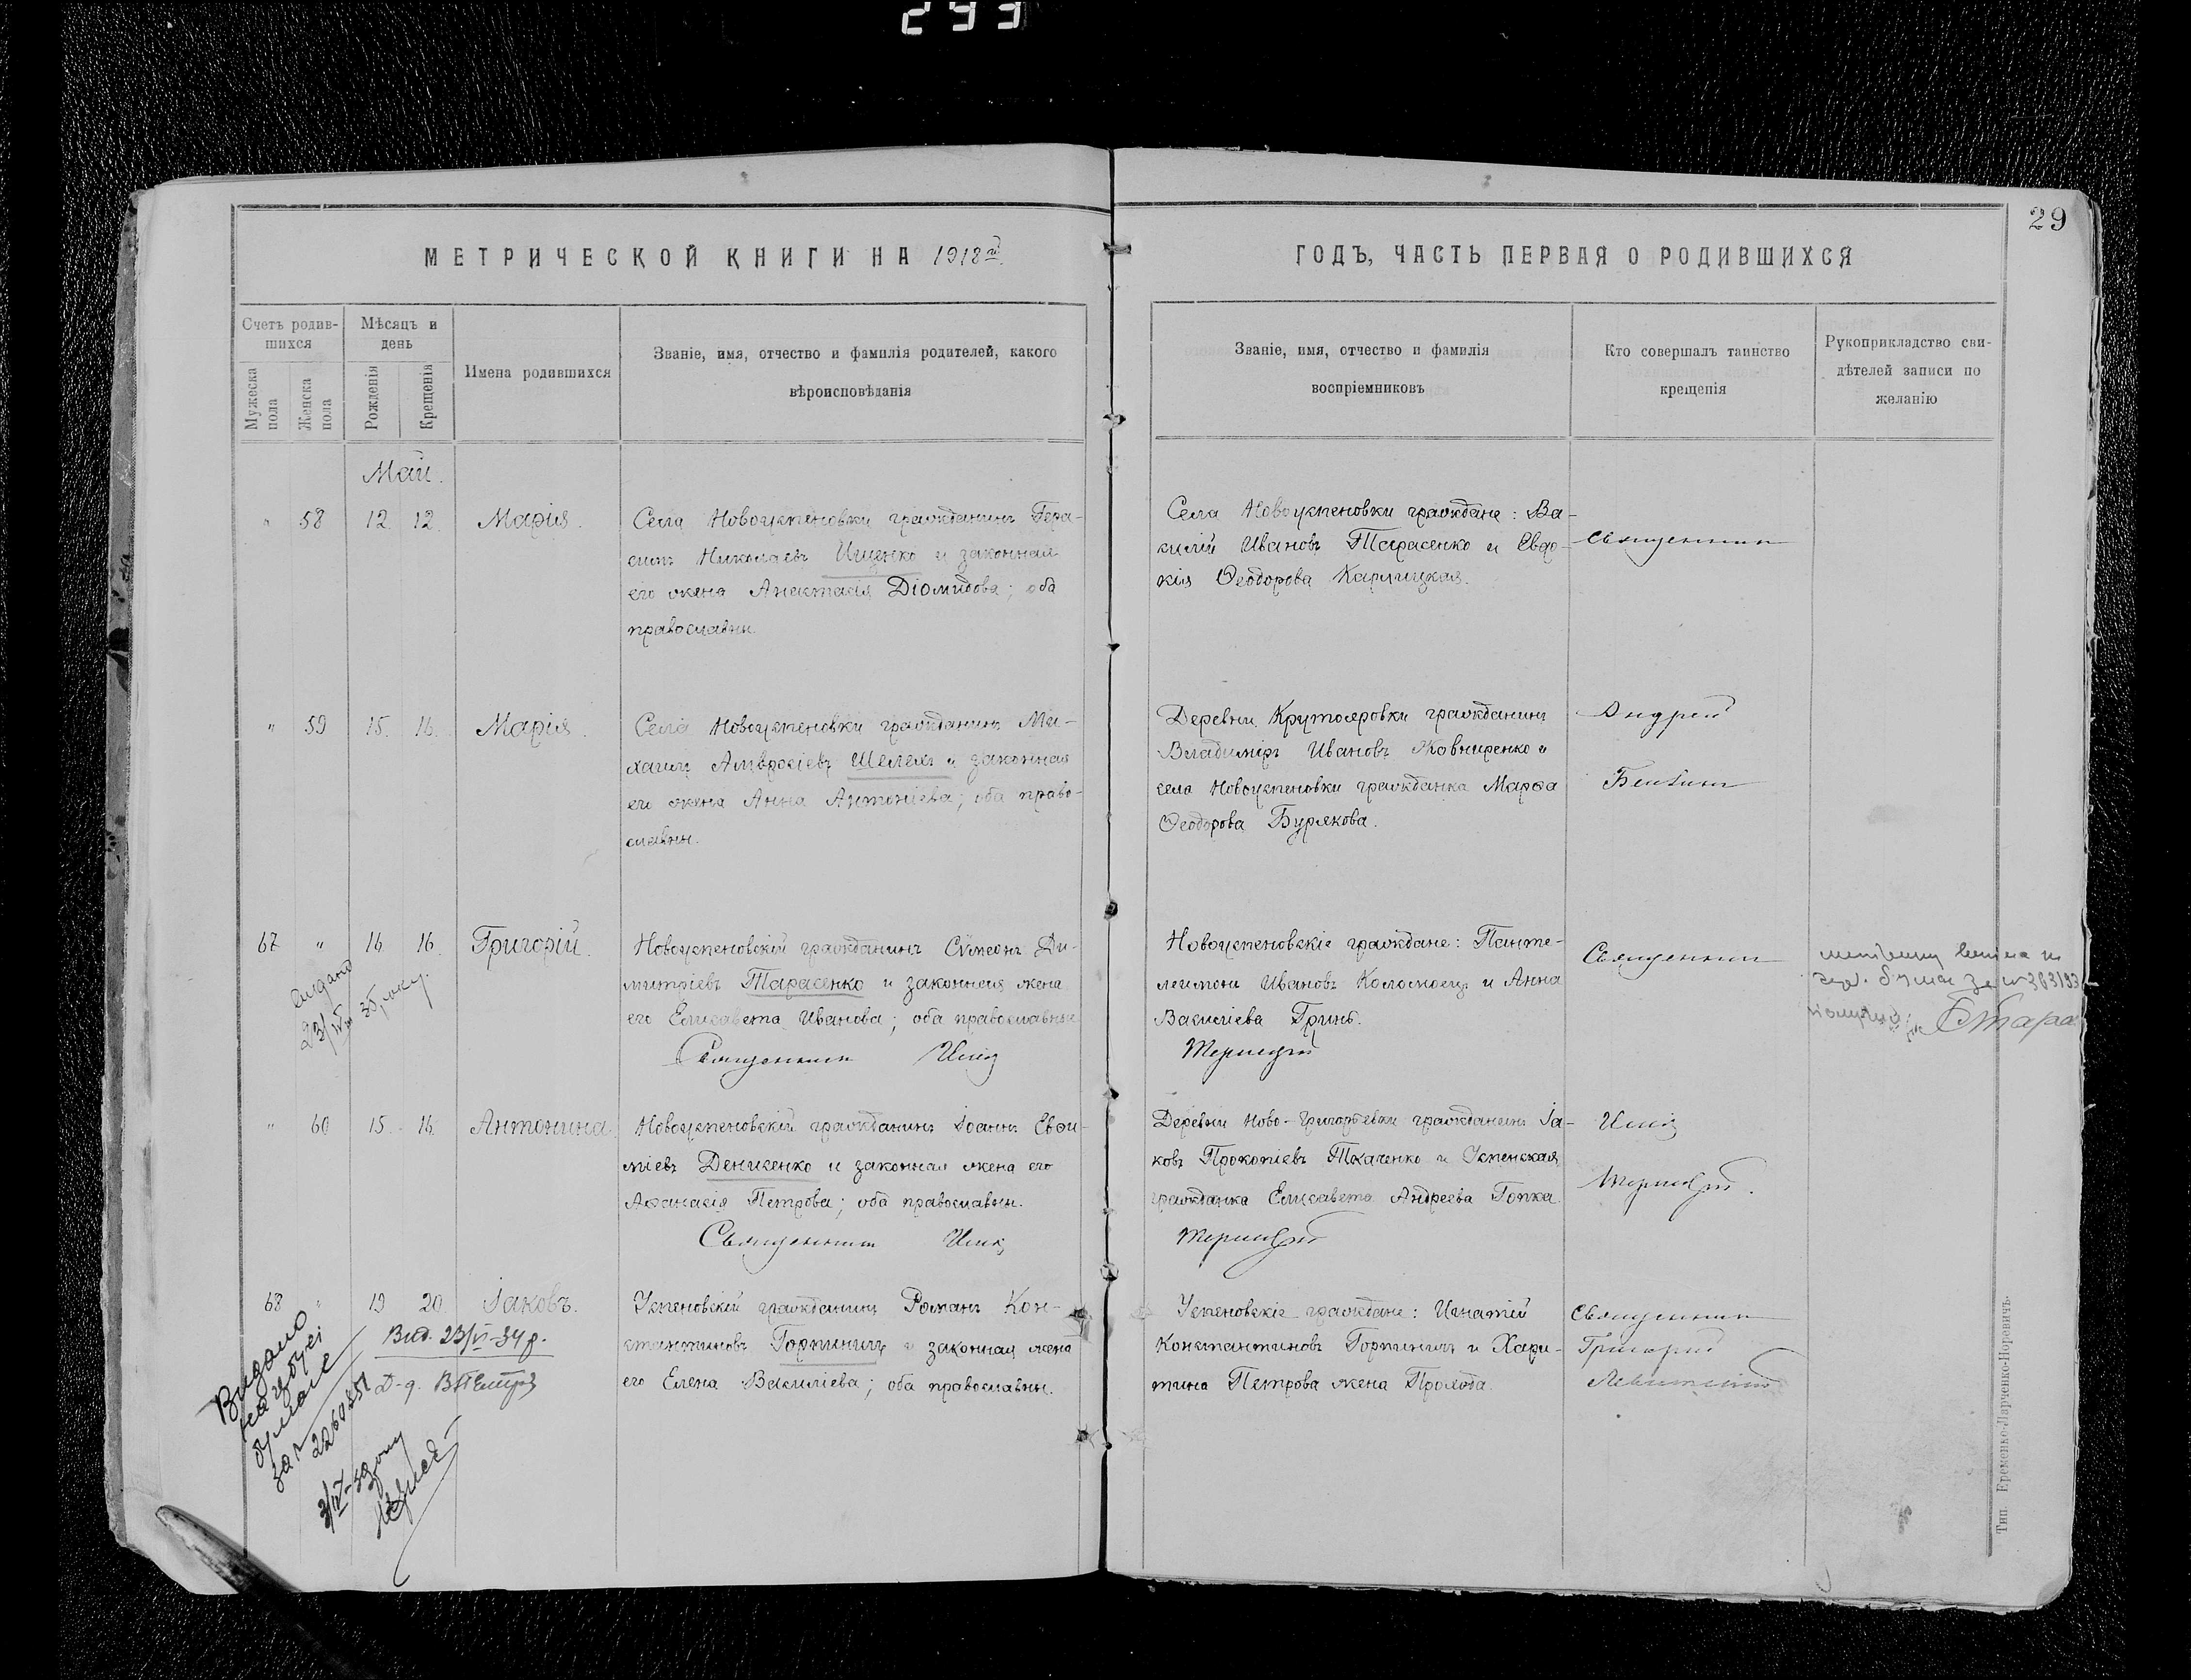 293
29
МЕТРИЧЕСКОЙ КНИГИ НА 1918 й
ГОДЪ, ЧАСТЬ ПЕРВАЯ О РОДИВШИХСЯ
Счетъ родив-
шихся
Мужеска пола
Женска пола
Мѣсяцъ и
день
Рожденія
Крещенія
Имена родившихся
Званіе, имя, отчество и фамилія родителей, какого
вѣроисповѣданія
Званіе, имя, отчество и фамилія
воспріемниковъ
Кто совершалъ таинство
крещенія
Рукоприкладство сви-
дѣтелей записи по
желанію
Май.
" 58 12. 12. Марія.
Села Новоуспеновки гражданинъ Гера-
симъ Николаевъ Ищенко и законная
его жена Анастасія Діомидова; оба
православны.
Села Новоуспеновки граждане: Ва-
силій Ивановъ Тарасенко и Евдо-
кія Ѳеодорова
Священник
" 59 15. 16. Марія.
Села Новоуспеновки гражданинъ Ми-
хаилъ Амвросіевъ Шелехъ и законная
его жена Анна Антоніева; оба право-
славны.
Деревни Крутояровки гражданинъ
Владиміръ Ивановъ Жовниренко и
села Новоуспеновки гражданка Марѳа
Ѳеодорова Бурякова.
Андрей
67 " 16. 16. Григорій.
Новоуспеновскій гражданинъ Сѵмеонъ Ди-
митріевъ Тарасенко и законная жена
его Елисавета Иванова; оба православны
Священник
Новоуспеновскіе граждане: Панте-
леимонъ Ивановъ Коломоецъ и Анна
Василіева Гринь.
Священник
видано
23/IV 35 року.
" 60 15. 16. Антонина.
Новоуспеновскій гражданинъ Іоаннъ Евѳи-
міевъ Денисенко и законная жена его
Аѳанасія Петрова; оба православны.
Священник
Деревни Ново-Григорьевки гражданинъ Іа-
ковъ Прокопіевъ Ткаченко и Успенская
гражданка Елисавета Андреева Гопка.
68 " 19 20. Іаковъ.
Успеновскій гражданинъ Романъ Кон-
стантиновъ Горпиничъ и законная жена
его Елена Василіева; оба православны.
Успеновскіе граждане: Игнатій
Константиновъ Горпиничъ и Хари-
тина Петрова жена
Священник
Григорий
Левитский
Вид. 23/VI-34 р.
Видано
на
за №
Тип. Еременко-Ларченко-Норевичъ.